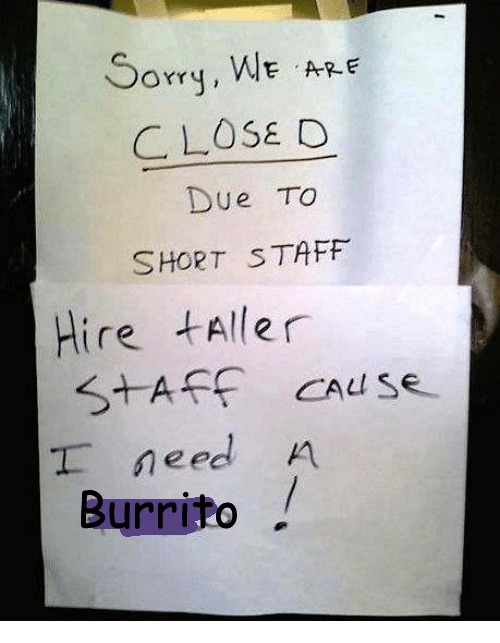 Sorry, WE ARE
CLOSED
Due TO
SHORT STAFF
Hire tAller
StAff CAUSe
I need A
Burrito !